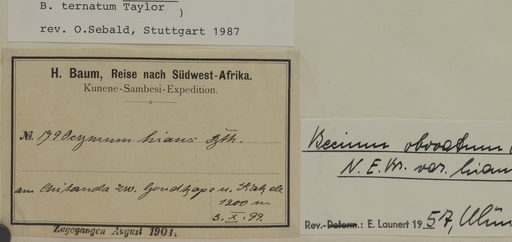 B. ternatum Taylor )
rev. O.Sebald, Stuttgart 1987
H. Baum, Reise nach Südwest-Afrika.
Kunene-Sambesi-Expedition.
No. 179 Ocymum hians Bth.
am Chitanda zw. u.
1200 m
3. X. 99.
Zugegangen August 1901.
Becium obovatum
N. E. Br. var. hian
Rev. Determ.: E. Launert 1957,